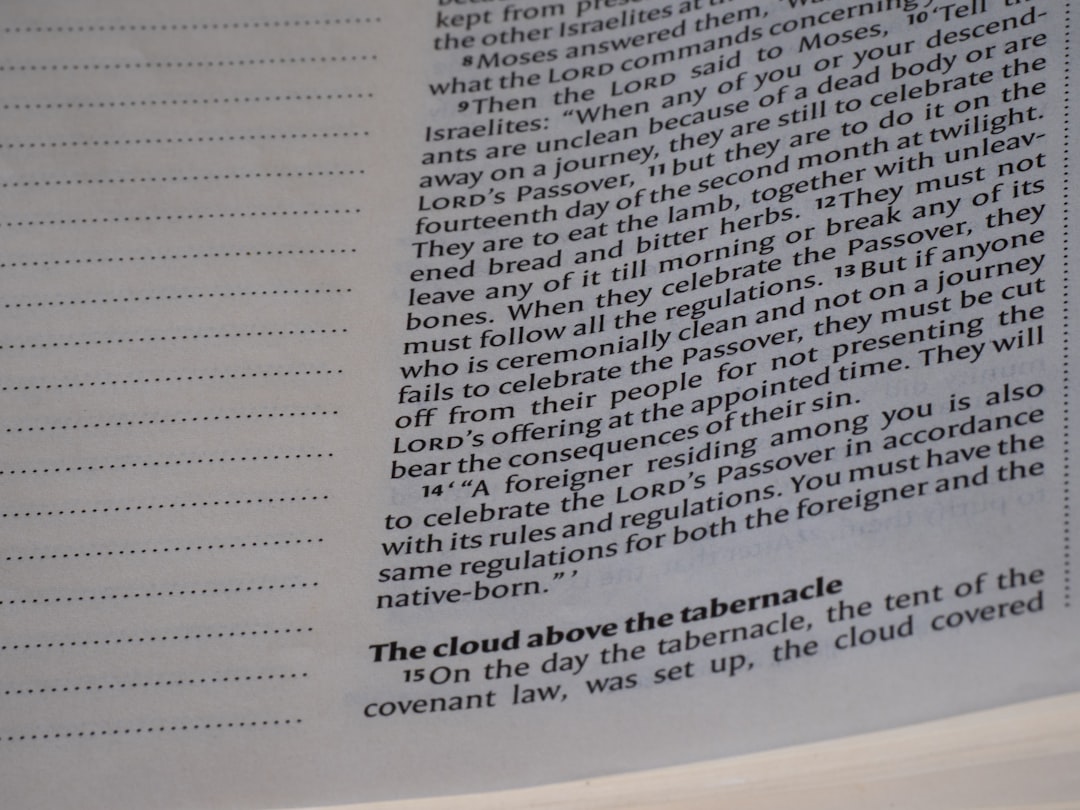 kept from
the other Israelites at
8 Moses answered them,
what the LORD commands concerning
9 Then the LORD said to Moses, 10 ‘Tell
Israelites: “When any of you or your descend-
ants are unclean because of a dead body or are
away on a journey, they are still to celebrate the
LORD’s Passover, 11 but they are to do it on the
fourteenth day of the second month at twilight.
They are to eat the lamb, together with unleav-
ened bread and bitter herbs. 12 They must not
leave any of it till morning or break any of its
bones. When they celebrate the Passover, they
must follow all the regulations. 13 But if anyone
who is ceremonially clean and not on a journey
fails to celebrate the Passover, they must be cut
off from their people for not presenting the
LORD’s offering at the appointed time. They will
bear the consequences of their sin.
14 ‘ “A foreigner residing among you is also
to celebrate the LORD’s Passover in accordance
with its rules and regulations. You must have the
same regulations for both the foreigner and the
native-born.” ’
The cloud above the tabernacle
15 On the day the tabernacle, the tent of the
covenant law, was set up, the cloud covered